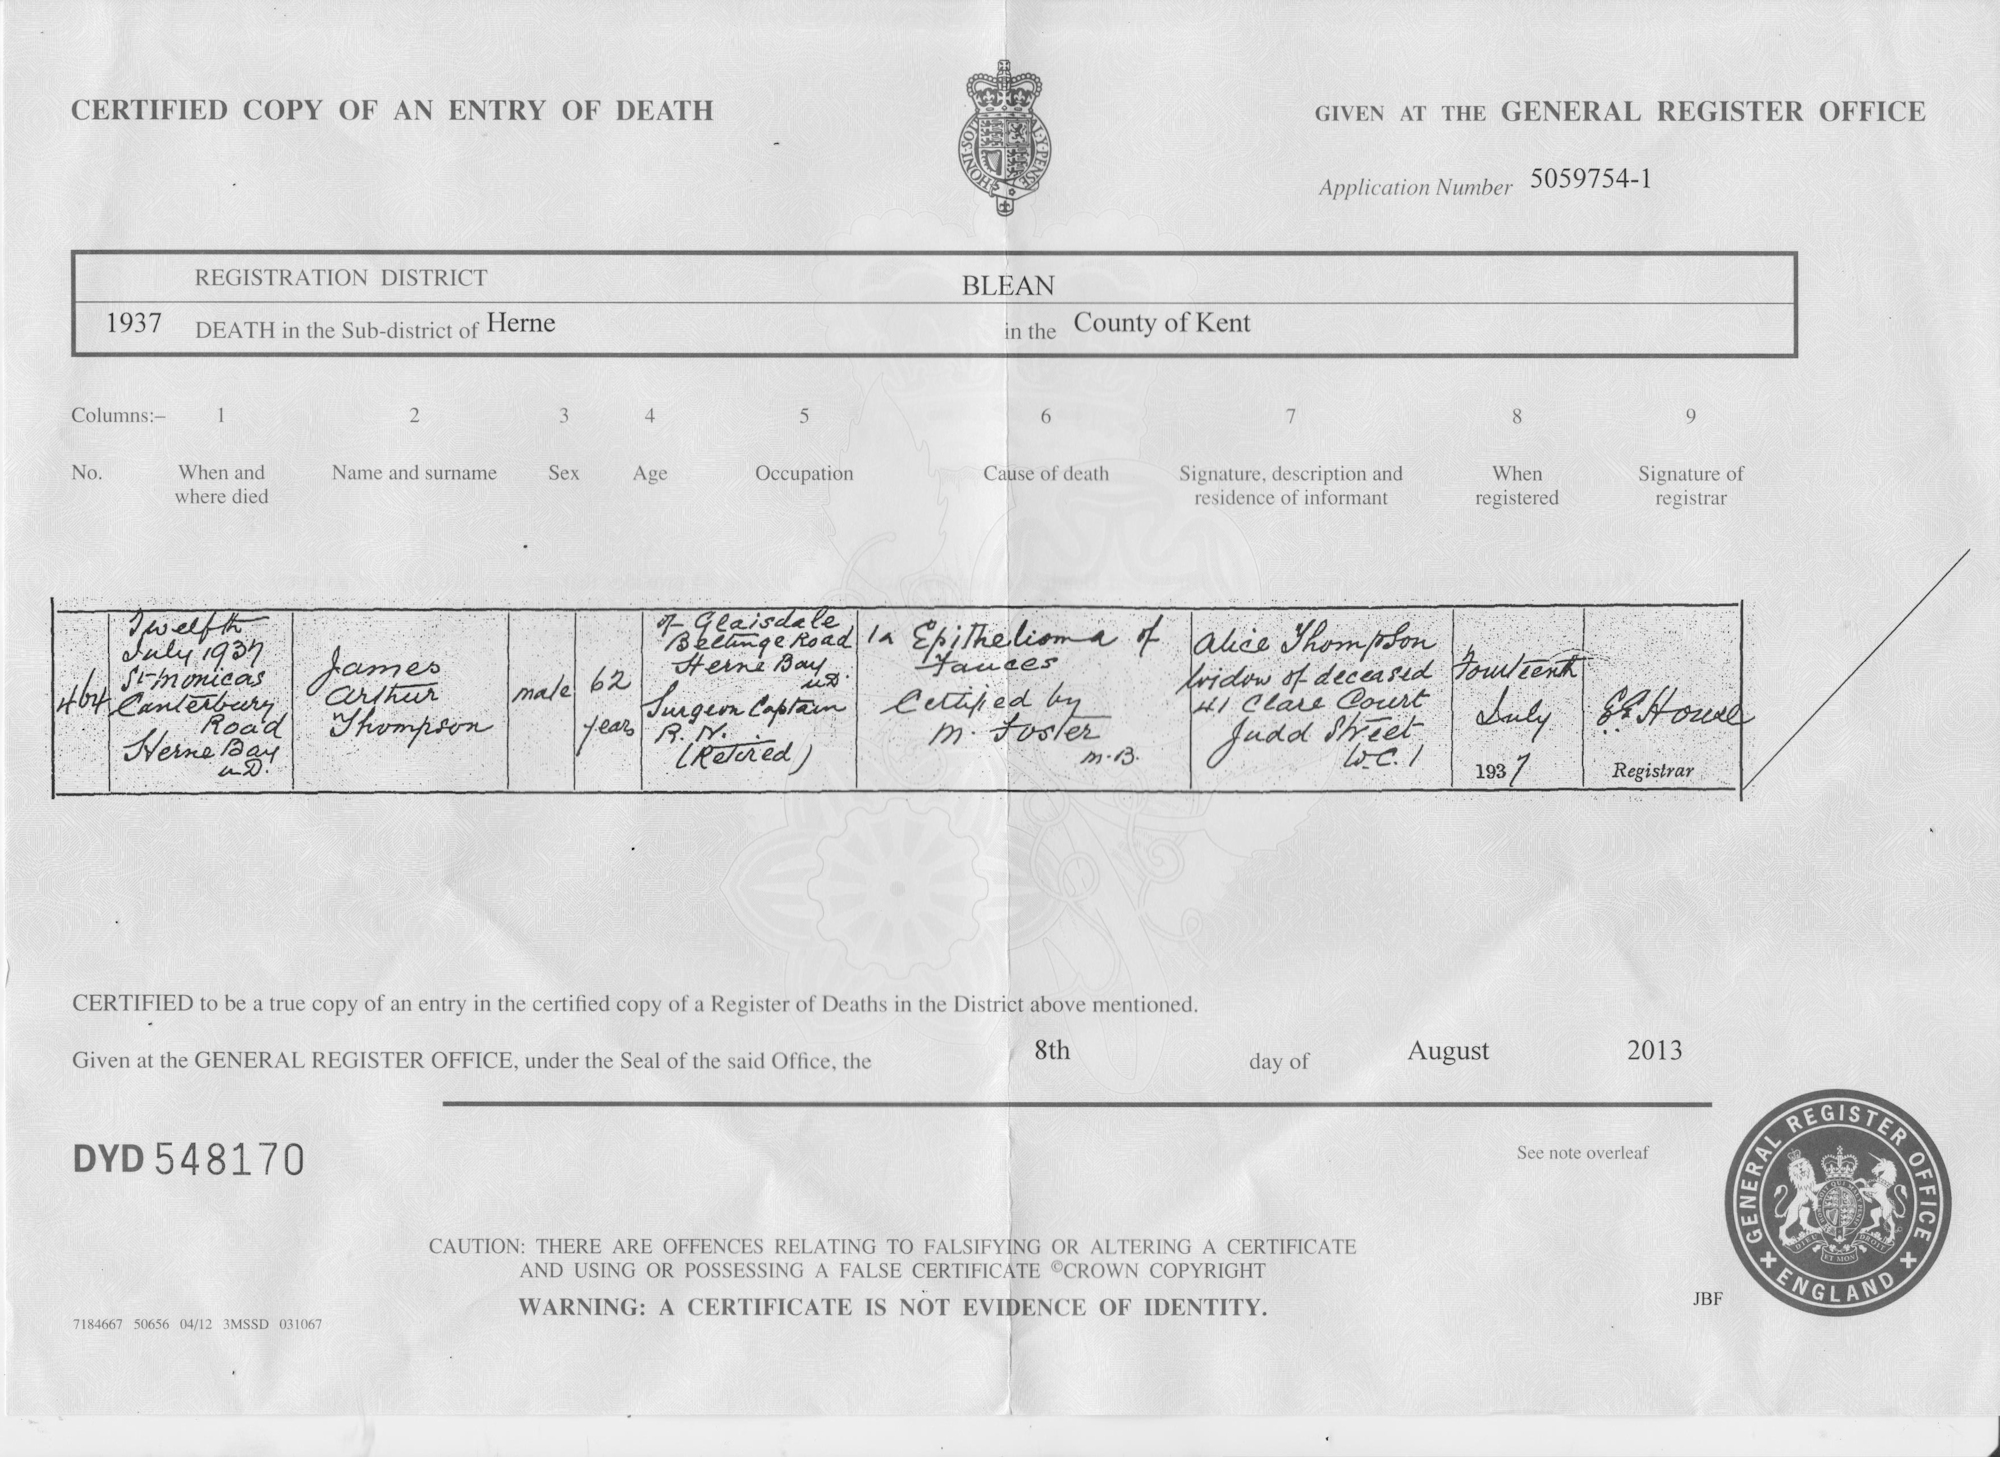 CERTIFIED COPY OF AN ENTRY OF DEATH
GIVEN AT THE GENERAL REGISTER OFFICE
HONI·SOIT
AL·Y·PENSE
Application Number 5059754-1
REGISTRATION DISTRICT BLEAN
1937 DEATH in the Sub-district of Herne in the County of Kent
Columns:– 1 2 3 4 5 6 7 8 9
No.
When and
where died
Name and surname
Sex
Age
Occupation
Cause of death
Signature, description and
residence of informant
When
registered
Signature of
registrar
464
Twelfth
July 1937
St Monicas
Canterbury
Road
Herne Bay
u.D.
James
Arthur
Thompson
male
62
years
of Glaisdale
Beltinge Road
Herne Bay
u.D.
Surgeon Captain
R.N.
(Retired)
1a Epithelioma of
Fauces
Certified by
M. Foster
M.B.
Alice Thompson
Widow of deceased
41 Clare Court
Judd Street
W.C.1
Fourteenth
July
1937
E E House
Registrar
CERTIFIED to be a true copy of an entry in the certified copy of a Register of Deaths in the District above mentioned.
Given at the GENERAL REGISTER OFFICE, under the Seal of the said Office, the 8th day of August 2013
DYD 548170
See note overleaf
GENERAL REGISTER OFFICE
ENGLAND
DIEU ET MON DROIT
CAUTION: THERE ARE OFFENCES RELATING TO FALSIFYING OR ALTERING A CERTIFICATE
AND USING OR POSSESSING A FALSE CERTIFICATE ©CROWN COPYRIGHT
WARNING: A CERTIFICATE IS NOT EVIDENCE OF IDENTITY.
JBF
7184667 50656 04/12 3MSSD 031067